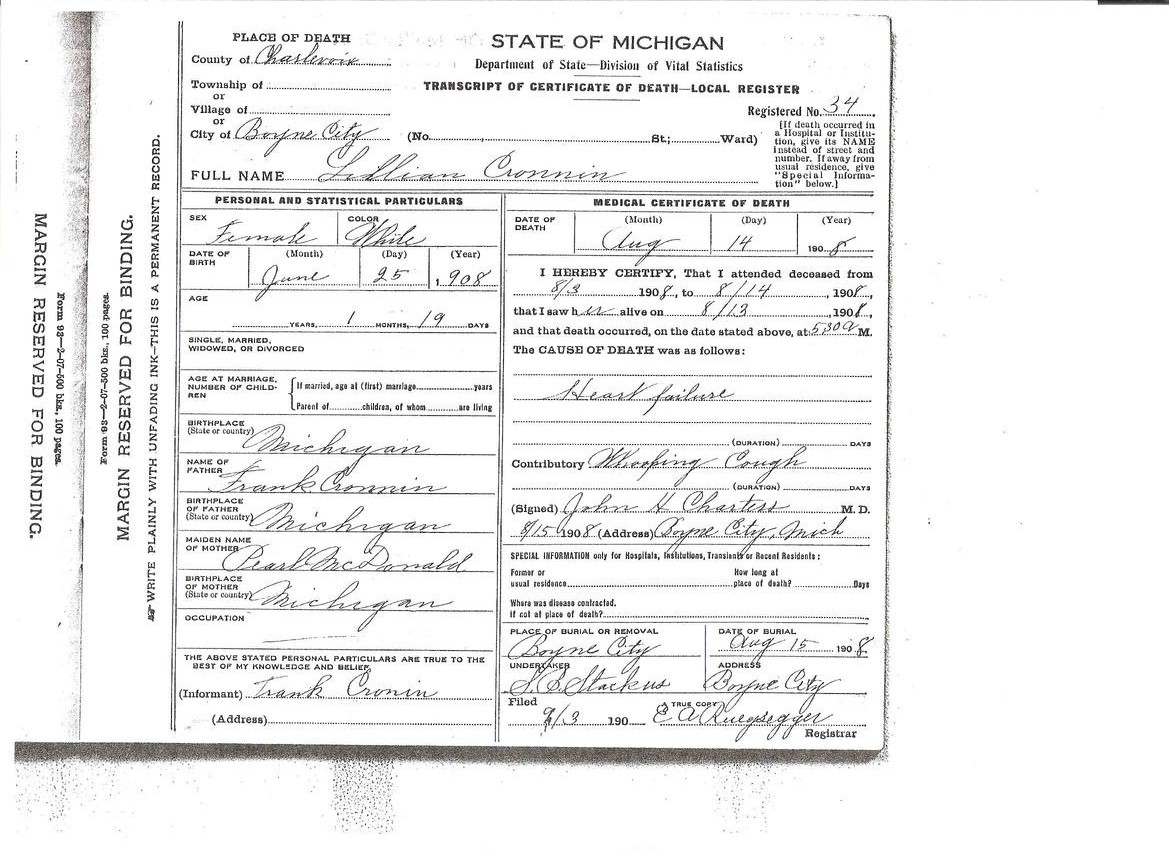 PLACE OF DEATH
County of Charlevoix
Township of
or
Village of
or
City of Boyne City (No. St.; Ward)
STATE OF MICHIGAN
Department of State—Division of Vital Statistics
TRANSCRIPT OF CERTIFICATE OF DEATH—LOCAL REGISTER
Registered No. 34
[If death occurred in
a Hospital or Institu-
tion, give its NAME
instead of street and
number. If away from
usual residence, give
"Special Informa-
tion" below.]
FULL NAME Lillian Cronnin
PERSONAL AND STATISTICAL PARTICULARS
SEX Female
COLOR White
DATE OF BIRTH
(Month) (Day) (Year)
June 25, 1908
AGE
YEARS, 1 MONTHS, 19 DAYS
SINGLE, MARRIED,
WIDOWED, OR DIVORCED
AGE AT MARRIAGE,
NUMBER OF CHILD-
REN
If married, age at (first) marriage years
Parent of children, of whom are living
BIRTHPLACE
(State or country) Michigan
NAME OF
FATHER Frank Cronnin
BIRTHPLACE
OF FATHER
(State or country) Michigan
MAIDEN NAME
OF MOTHER Pearl McDonald
BIRTHPLACE
OF MOTHER
(State or country) Michigan
OCCUPATION
THE ABOVE STATED PERSONAL PARTICULARS ARE TRUE TO THE
BEST OF MY KNOWLEDGE AND BELIEF.
(Informant) Frank Cronin
(Address)
MEDICAL CERTIFICATE OF DEATH
DATE OF
DEATH
(Month) (Day) (Year)
Aug 14 1908
I HEREBY CERTIFY, That I attended deceased from
8/3 1908, to 8/14, 1908,
that I saw her alive on 8/13, 1908,
and that death occurred, on the date stated above, at 530a M.
The CAUSE OF DEATH was as follows:
Heart failure
(DURATION) DAYS
Contributory Whooping Cough
(DURATION) DAYS
(Signed) John H Charters M. D.
8/15 1908 (Address) Boyne City, Mich
SPECIAL INFORMATION only for Hospitals, Institutions, Transients or Recent Residents:
Former or
usual residence
How long at
place of death? Days
Where was disease contracted,
if not at place of death?
PLACE OF BURIAL OR REMOVAL
Boyne City
DATE OF BURIAL
Aug 15 1908
UNDERTAKER
S. B. Stackus
ADDRESS
Boyne City
Filed
9/3 190
A TRUE COPY
E A Ruegsegger
Registrar
☞ WRITE PLAINLY WITH UNFADING INK—THIS IS A PERMANENT RECORD.
MARGIN RESERVED FOR BINDING.
Form 93—2-07-500 bks., 100 pages.
Form 93—2-07-500 bks., 100 pages.
MARGIN RESERVED FOR BINDING.